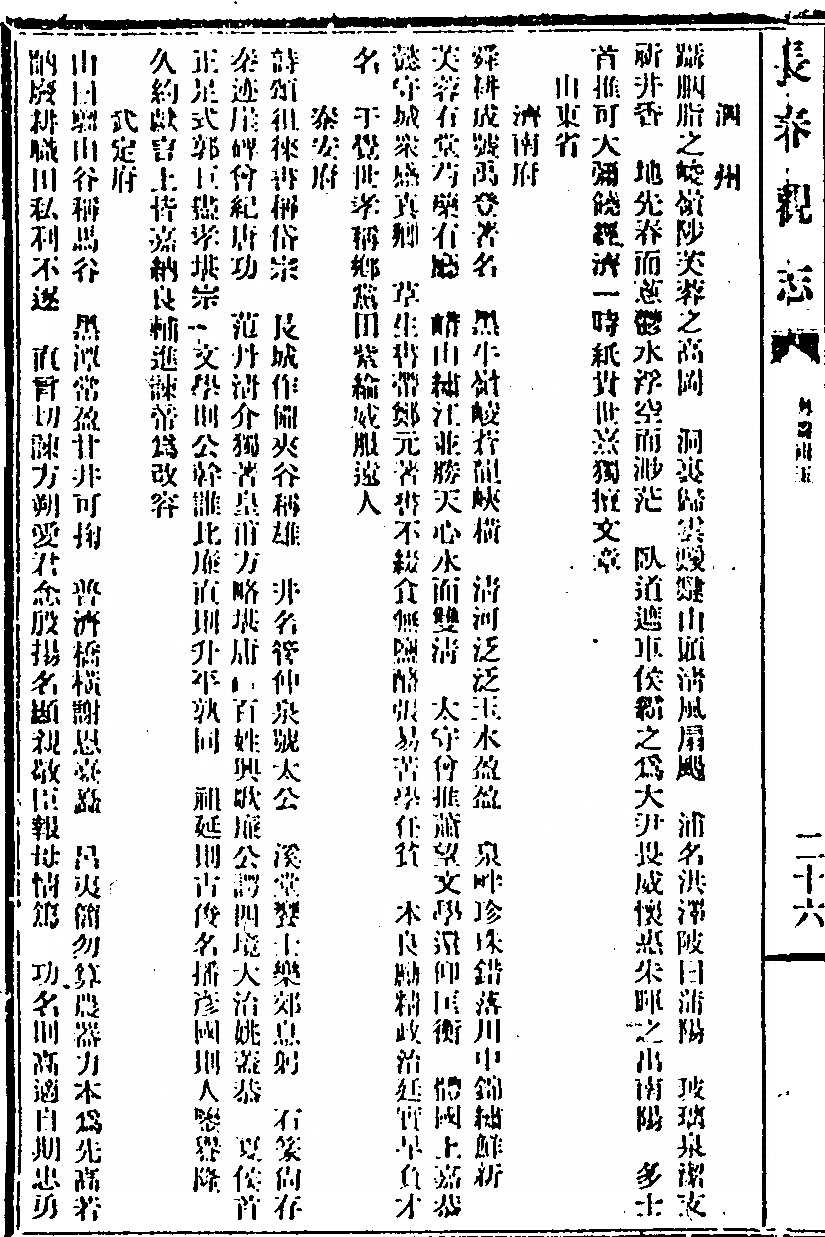 長春觀志
二十六
泗州
躡胭脂之峻嶺陟芙蓉之高岡　洞裏歸雲靉靆山頭清風扇颺　浦名洪澤陂曰蒲陽　玻璃泉潔支
祈井香　地先春而蔥鬱水浮空而渺茫　臥道遮車侯霸之爲大尹畏威懷惠朱暉之出南陽　多士
首推可大彌饒經濟一時紙貴世業獨擅文章
山東省
濟南府
舜耕成號禹登著名　黑牛嶺峻蒼龍峽橫　清河泛泛玉水盈盈　泉畔珍珠錯落川中錦繡鮮新
芙蓉有堂芍藥有廳　嶧山繡江並勝天心水面雙清　太守曾推蕭望文學還仰匡衡　體國上嘉恭
懿守城眾感真卿　草生書帶鄭元著書不綴食無鹽酪張易苦學任貧　木良勵精政治廷實早負才
名　于覺世孝稱鄉黨田紫綸威服遠人
泰安府
詩頌徂徠書稱岱宗　長城作備夾谷稱雄　井名管仲泉號太公　溪堂聚士樂郊息躬　石篆尚存
秦迹崖碑曾紀唐功　范丹清介獨著皇甫方略堪庸　百姓興歌龐公諤四境大治姚蓋恭　夏侯首
正足式郭巨盡孝堪宗　文學則公幹誰比龐直則升平孰同　祖延則古俊名播彥國則人鑒譽隆
久約獻言上皆嘉納良輔進諫帝爲改容
武定府
山曰騶山谷稱馬谷　黑潭常盈甘井可掬　普濟橋橫謝恩臺矗　呂夷簡勿算農器力本爲先高若
訥廢耕職田私利不逐　直言切諫方朔愛君念殷揚名顯親敬臣報母情篤　功名則高適自期忠勇